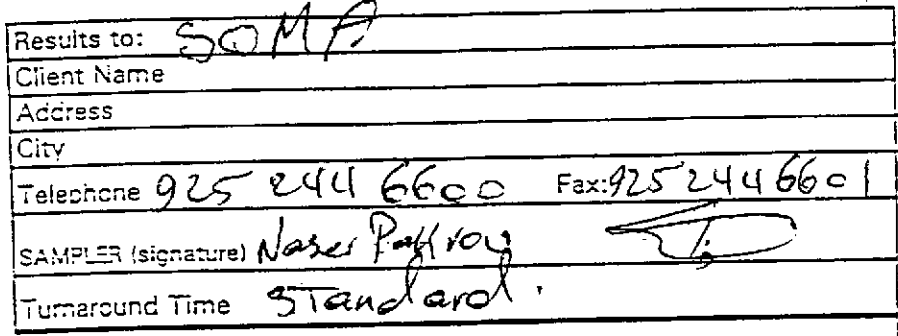 Results to: SOMA
Client Name
Address
City
Telephone 925 244 6600 Fax: 925 244 6601
SAMPLER (signature) Naser
Turnaround Time Standard.